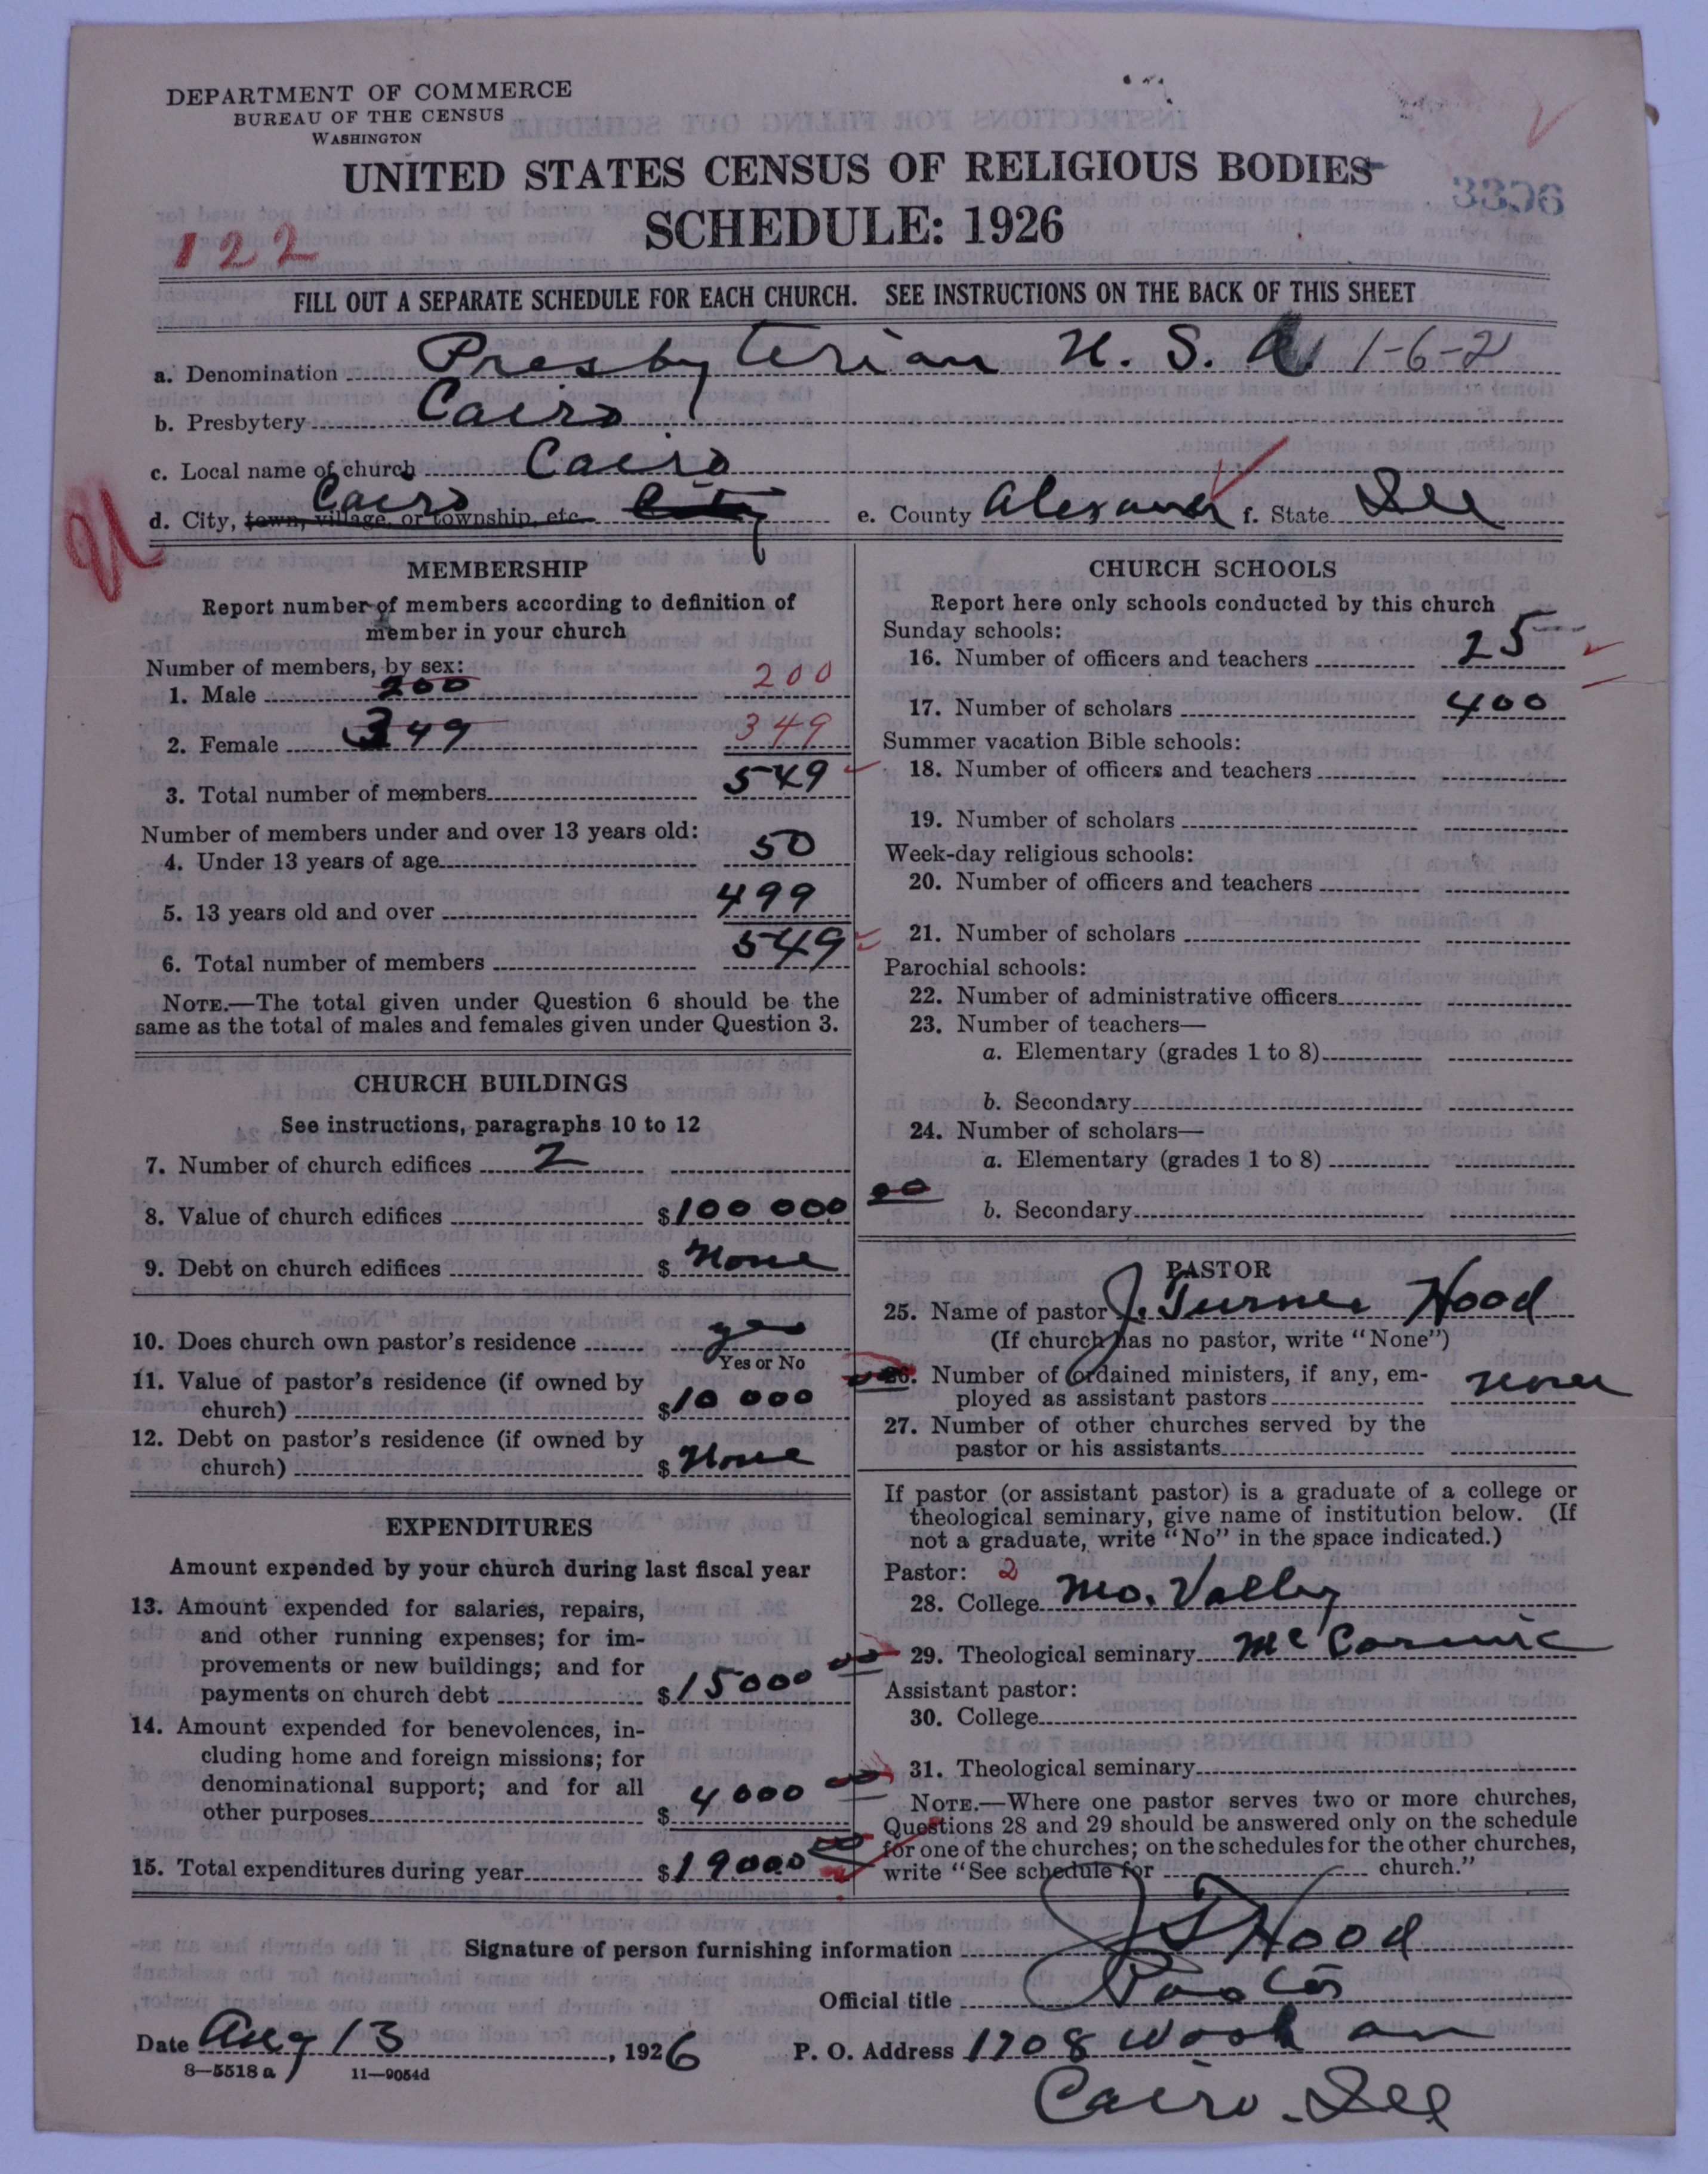 DEPARTMENT OF COMMERCE
BUREAU OF THE CENSUS
WASHINGTON
UNITED STATES CENSUS OF RELIGIOUS BODIES
SCHEDULE: 1926
122
FILL OUT A SEPARATE SCHEDULE FOR EACH CHURCH. SEE INSTRUCTIONS ON THE BACK OF THIS SHEET
a. Denomination Presbyterian U. S. A 1-6-21
b. Presbytery Cairo
c. Local name of church Cairo
d. City, town, village, or township, etc. Cairo City e. County Alexander f. State Ill
MEMBERSHIP
Report number of members according to definition of
member in your church
Number of members, by sex:
1. Male 200 200
2. Female 349 349
3. Total number of members 549
Number of members under and over 13 years old:
4. Under 13 years of age 50
5. 13 years old and over 499
6. Total number of members 549
NOTE.—The total given under Question 6 should be the
same as the total of males and females given under Question 3.
CHURCH BUILDINGS
See instructions, paragraphs 10 to 12
7. Number of church edifices 2
8. Value of church edifices $100 000 00
9. Debt on church edifices $ None
10. Does church own pastor's residence yes
Yes or No
11. Value of pastor's residence (if owned by
church) $10 000 00
12. Debt on pastor's residence (if owned by
church) $ None
EXPENDITURES
Amount expended by your church during last fiscal year
13. Amount expended for salaries, repairs,
and other running expenses; for im-
provements or new buildings; and for
payments on church debt $15000 00
14. Amount expended for benevolences, in-
cluding home and foreign missions; for
denominational support; and for all
other purposes $4000 00
15. Total expenditures during year $19000 00
CHURCH SCHOOLS
Report here only schools conducted by this church
Sunday schools:
16. Number of officers and teachers 25
17. Number of scholars 400
Summer vacation Bible schools:
18. Number of officers and teachers
19. Number of scholars
Week-day religious schools:
20. Number of officers and teachers
21. Number of scholars
Parochial schools:
22. Number of administrative officers
23. Number of teachers—
a. Elementary (grades 1 to 8)
b. Secondary
24. Number of scholars—
a. Elementary (grades 1 to 8)
b. Secondary
PASTOR
25. Name of pastor J. Turner Hood
(If church has no pastor, write "None")
26. Number of ordained ministers, if any, em-
ployed as assistant pastors None
27. Number of other churches served by the
pastor or his assistants
If pastor (or assistant pastor) is a graduate of a college or
theological seminary, give name of institution below. (If
not a graduate, write "No" in the space indicated.)
Pastor: 2
28. College Mo. Valley
29. Theological seminary McCormic
Assistant pastor:
30. College
31. Theological seminary
NOTE.—Where one pastor serves two or more churches,
Questions 28 and 29 should be answered only on the schedule
for one of the churches; on the schedules for the other churches,
write "See schedule for church."
Signature of person furnishing information J T Hood
Official title Pastor
Date Aug 13, 1926 P. O. Address 1708 Wash
8—5518 a 11—9054d
Cairo. Ill